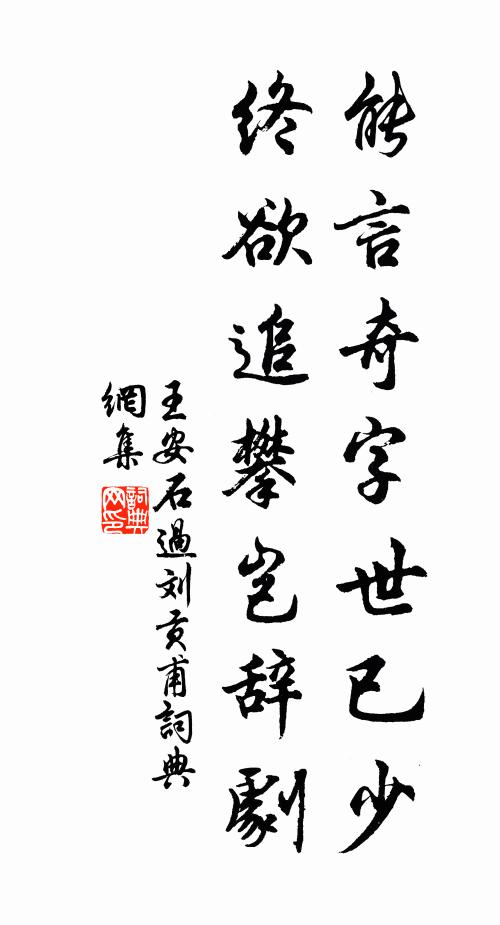 能言奇字世已少
终欲追攀岂辞劇
王安石過刘贡甫詞典
網集
詞典
网印